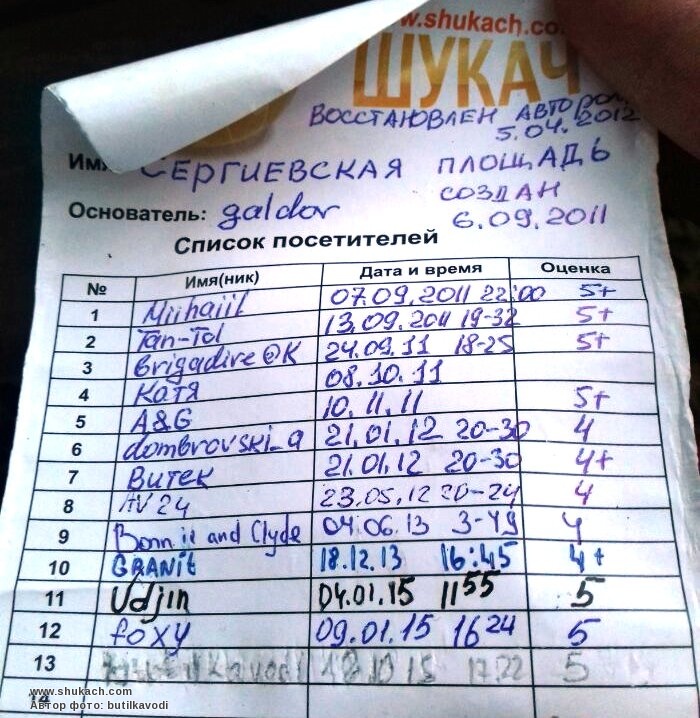 www.shukach.com
ШУКАЧ
ВОССТАНОВЛЕН АВТОРОМ
5.04.2012
Имя СЕРГИЕВСКАЯ ПЛОЩАДЬ
СОЗДАН
Основатель: galdor 6.09.2011
Список посетителей
№ Имя(ник) Дата и время Оценка
1 Miihaiil 07.09.2011 22:00 5+
2 Tan-Tol 13.09.2011 19-32 5+
3 Brigadire@K 24.09.11 18-25 5+
4 Катя 08.10.11
5 A&G 10.11.11 5+
6 dombrovski_a 21.01.12 20-30 4
7 Витек 21.01.12 20-30 4+
8 AV24 23.05.12 20-24 4
9 Bonnie and Clyde 04.06.13 3-49 4
10 GRANit 18.12.13 16:45 4+
11 Udjin 04.01.15 1155 5
12 foxy 09.01.15 1624 5
13 5
14
www.shukach.com
Автор фото: butilkavodi